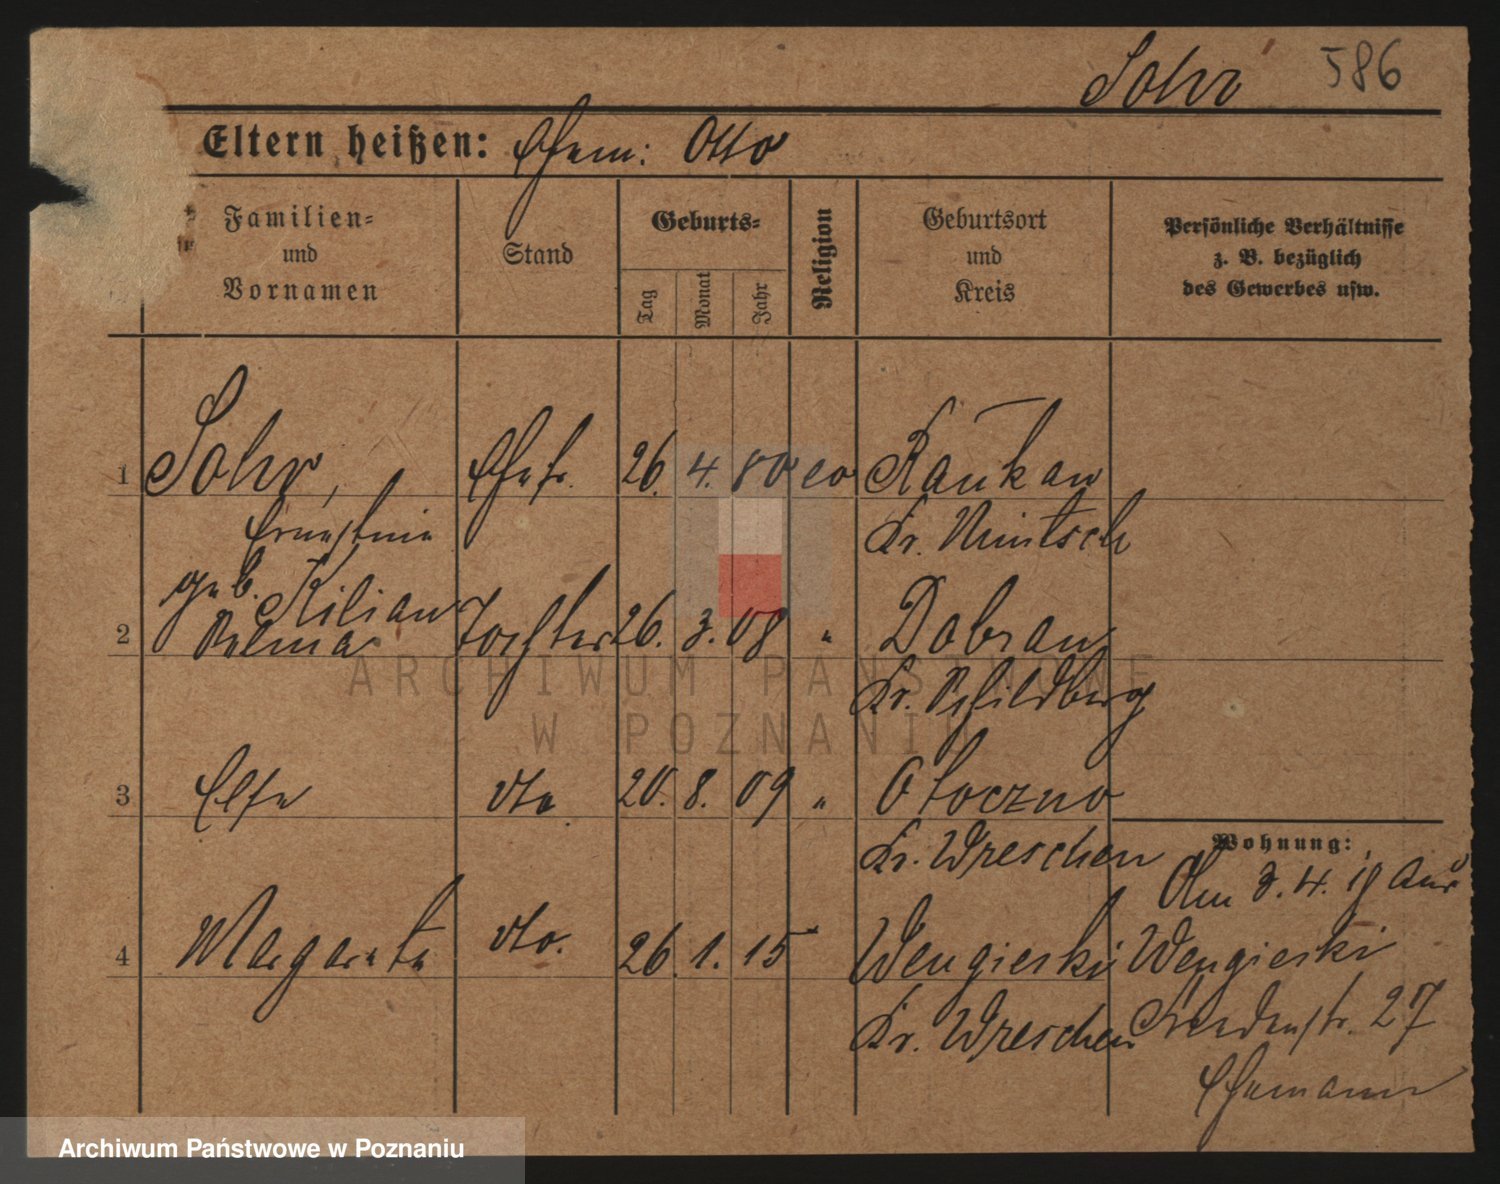 Sohr 586
Eltern heißen: Ehem: Otto
Familien-
und
Vornamen
Stand
Geburts-
Tag
Monat
Jahr
Religion
Geburtsort
und
Kreis
Persönliche Verhältnisse
z. B. bezüglich
des Gewerbes usw.
1 Sohr, Ehefr. 26. 4. 80 ev Kaukau
Ernestine Kr. Nimtsch
geb. Kilian
2 Selma Tochter 26. 3. 08 " Dobrau
Kr. Schildberg
3 Else dto 20. 8. 09 " Otoczno
Kr. Wreschen
4 Margarete dto. 26. 1. 15 Wengierski
Kr. Wreschen
Wohnung:
Am 3. 4. 19 aus
Wengierski
27
Ehemann
ARCHIWUM PAŃSTWOWE
W POZNANIU
Archiwum Państwowe w Poznaniu